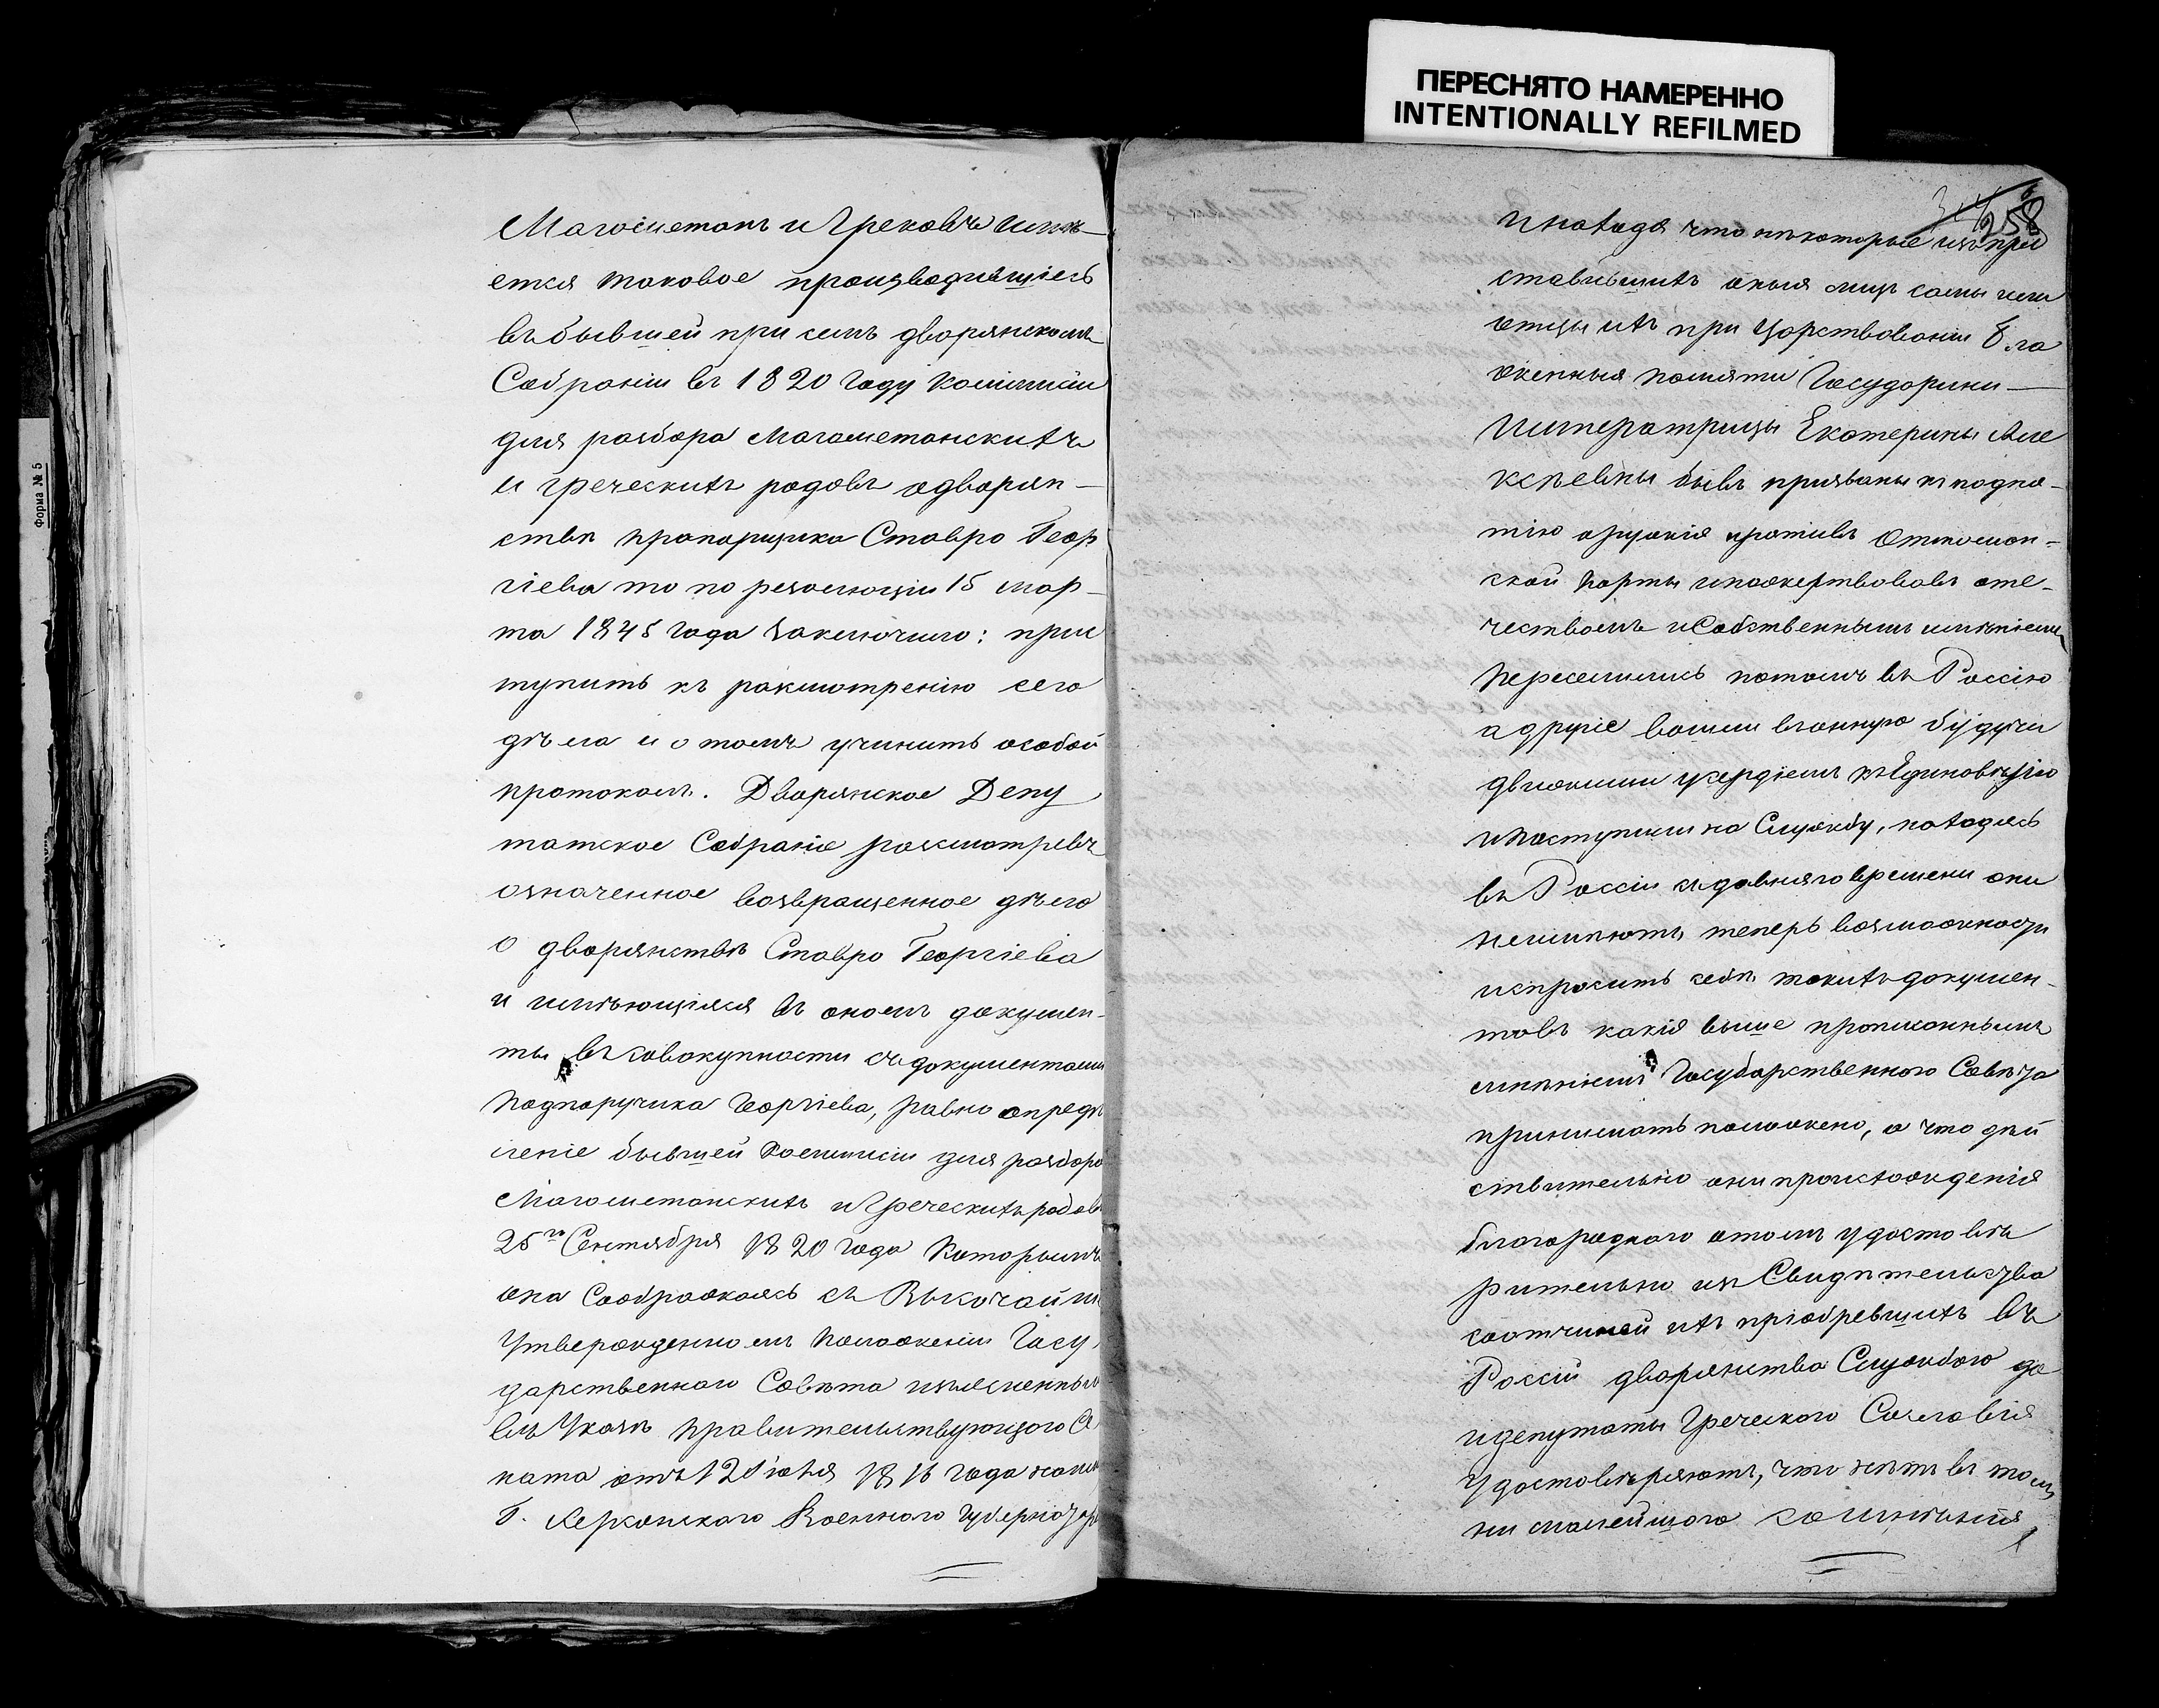 ПЕРЕСНЯТО НАМЕРЕННО
INTENTIONALLY REFILMED
Форма № 5
Магометанъ и Грековъ имѣ-
ется таковое производившіесь
въ бывшей при семъ дворянскомъ
Собраніи въ 1820 году Коммисіи
для разбора Магометанскихъ
и греческихъ родовъ одворян-
ствѣ прапорщика Ставро Геор
гіева то по резолюціи 15 мар-
та 1845 года заключило: прис
тупить къ разсмотренію сего
дѣла и о томъ учинить особой
протоколъ. Дворянское Депу
татское Собраніе разсмотревъ
означенное возвращенное дѣло
о дворянствѣ Ставро Георгіева
и имѣющіяся въ ономъ докумен-
ты въ совокупности съ документами
Подпоручика Георгіева, равно опредѣ
леніе бывшей Коммисіи для разбора
Магометанскихъ и Греческихъ родовъ
25го Сентября 1820 года которымъ
она Соображаясь съ Высочайше
Утвержденномъ Положеніи Госу
дарственнаго Совѣта изъясненнымъ
въ Указѣ Правительствующаго Се
ната отъ 1816 года
Г. Херсонскаго Военнаго Губернатора
258
и находя что нѣкоторые изъ пред
ставившихъ оныя лицъ сами или
отцы ихъ при царствованіи Бла
женныя памяти Государыни
Императрицы Екатерины Але
ксѣевны бывъ призваны къ подня-
тію оружія противъ Оттоман-
ской Порты и пожертвовавъ оте-
чествомъ и Собственнымъ имѣніемъ
переселились потомъ въ Россію
а другіе вошли въ оную будучи
движимы усердіемъ къ Единовѣрію
и поступили на Службу, находясь
въ Россіи съ давняго времени они
неимѣютъ теперь возможности
испросить себѣ такихъ докумен-
товъ какія выше прописаннымъ
мнѣніемъ Государственнаго Совѣта
принимать положено, а что дѣй
ствительно они происхожденія
благороднаго отомъ удостовѣ
рительно изъ Свидѣтельства
соотчичей ихъ пріобревшихъ въ
Россіи дворянство Службою да
и депутаты Греческаго Сословія
удостовѣряютъ, что нѣтъ въ томъ
ни малейшаго сомнѣнія